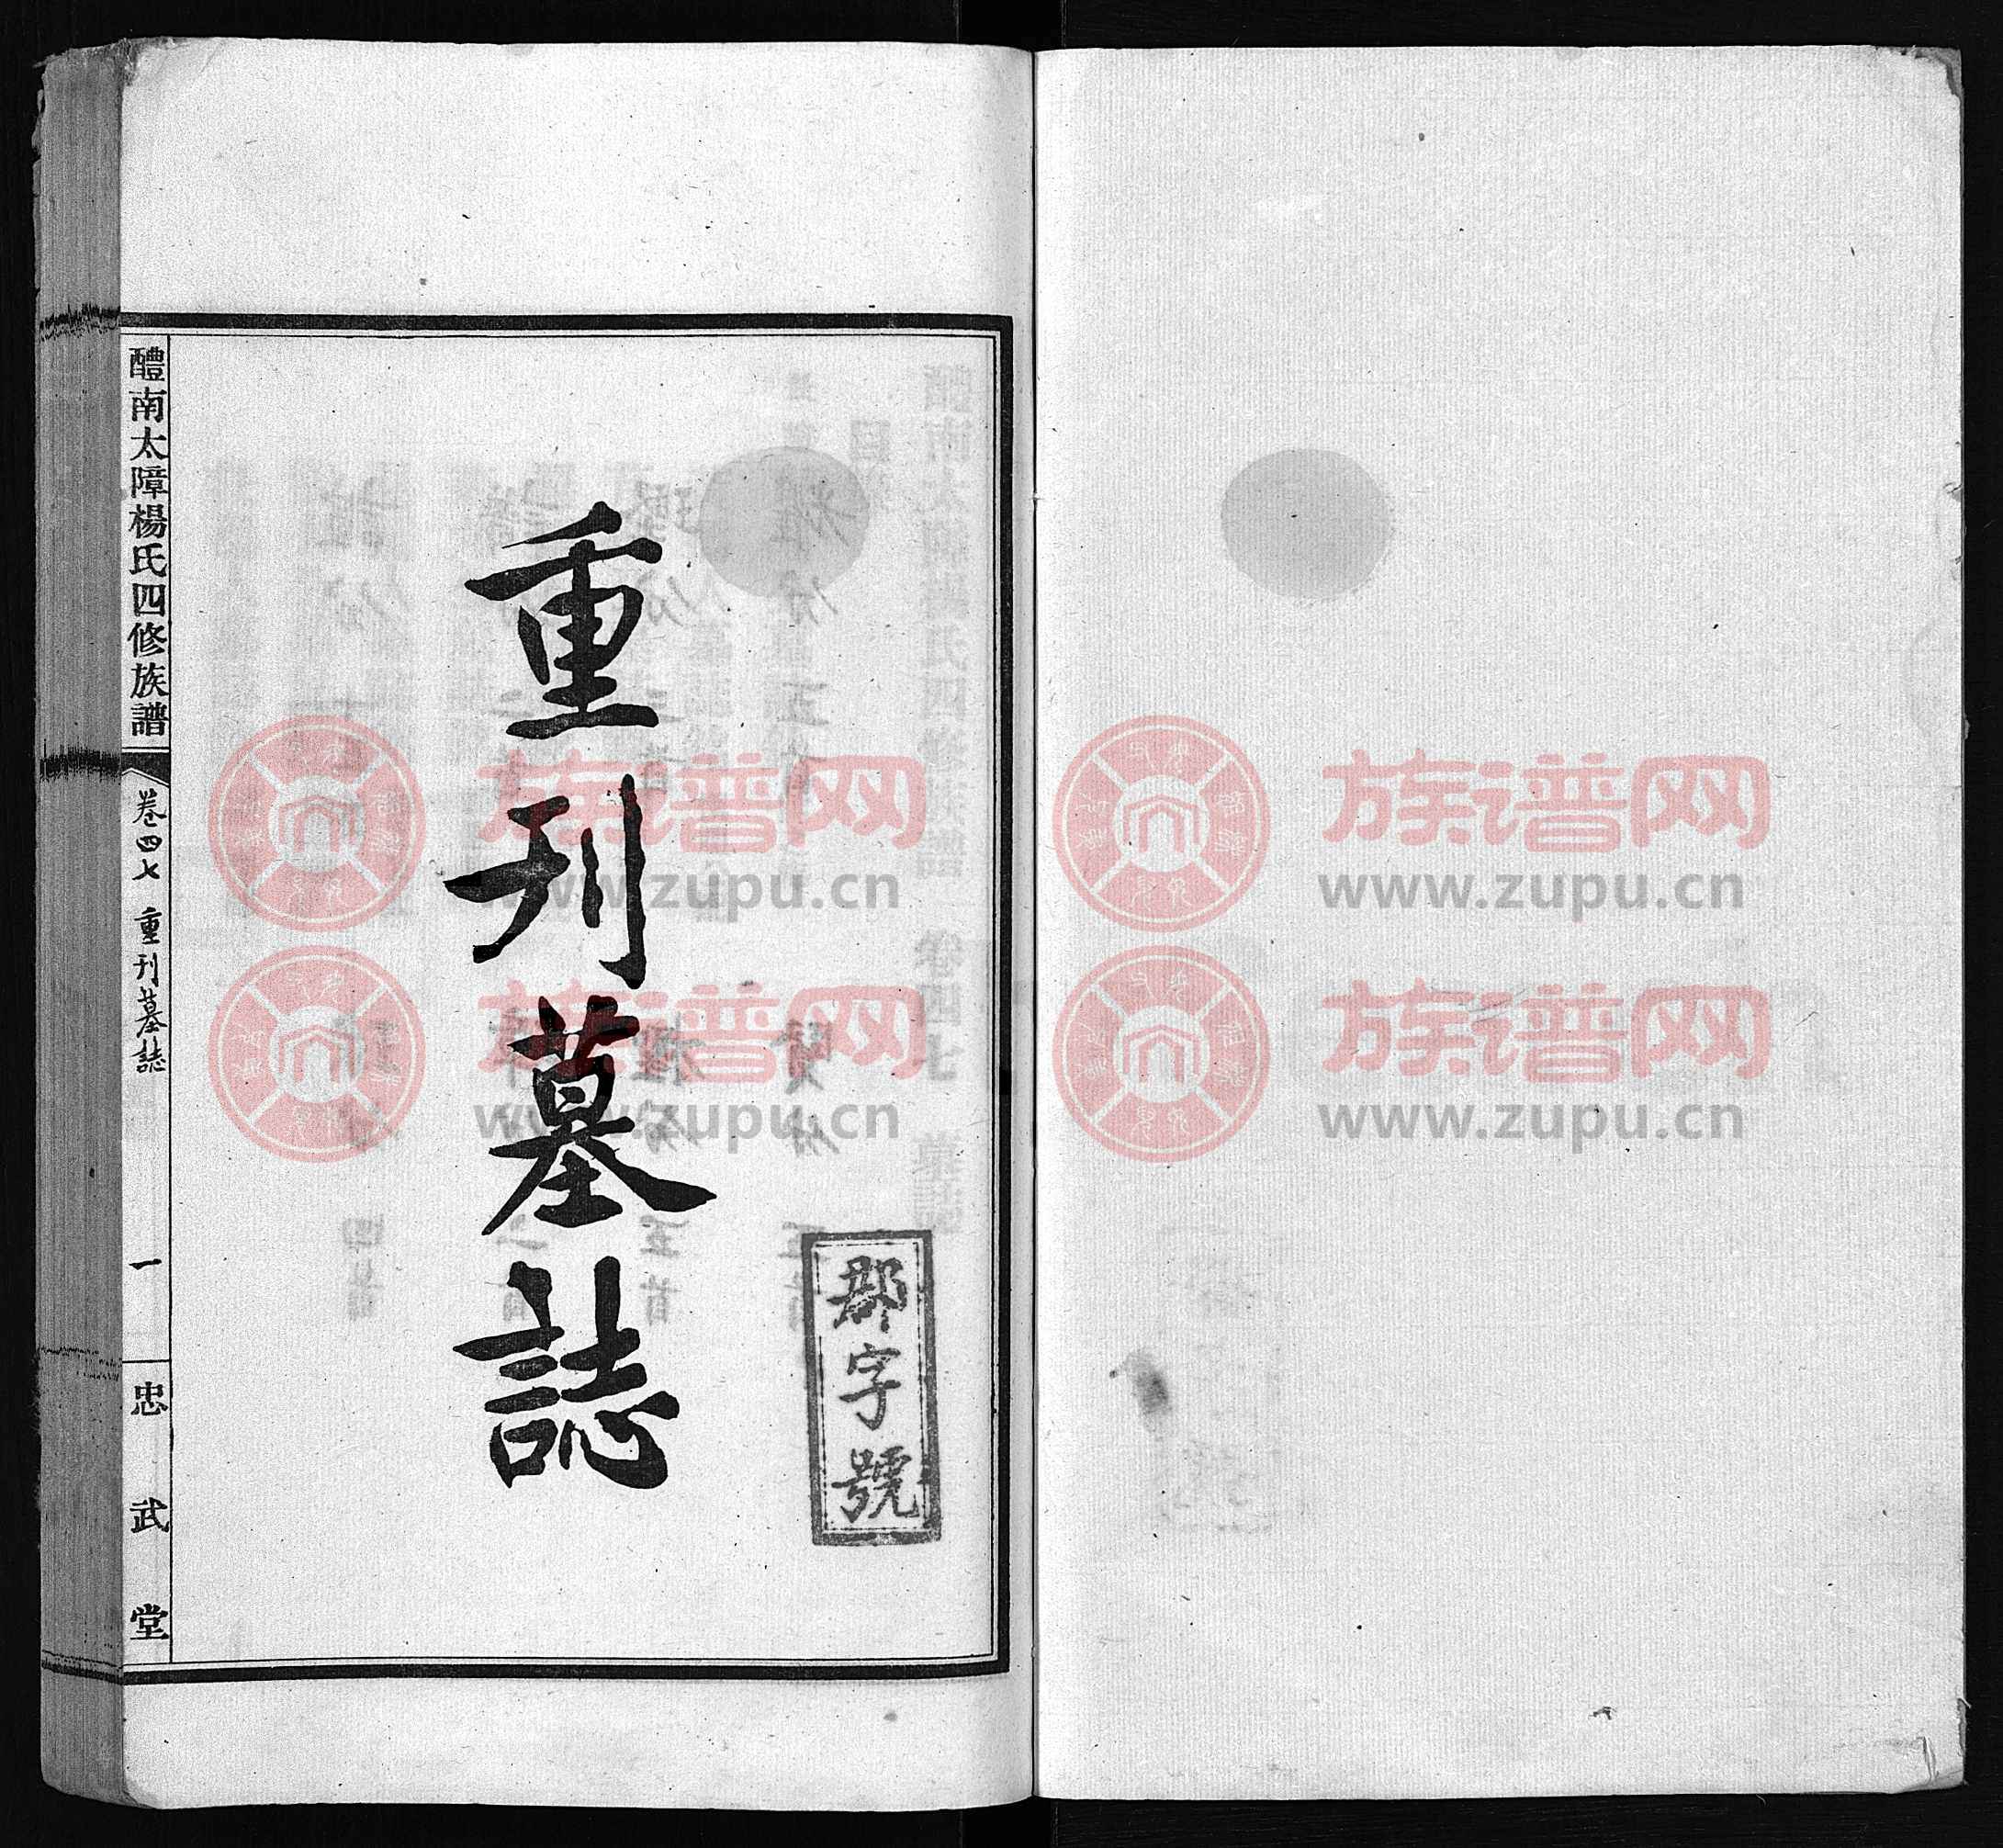 郡字號
重刊墓誌
醴南太障楊氏四修族譜
卷四七 重刊墓誌
一
忠武堂
族谱网
www.zupu.cn
族谱网
www.zupu.cn
族谱网
www.zupu.cn
族谱网
www.zupu.cn